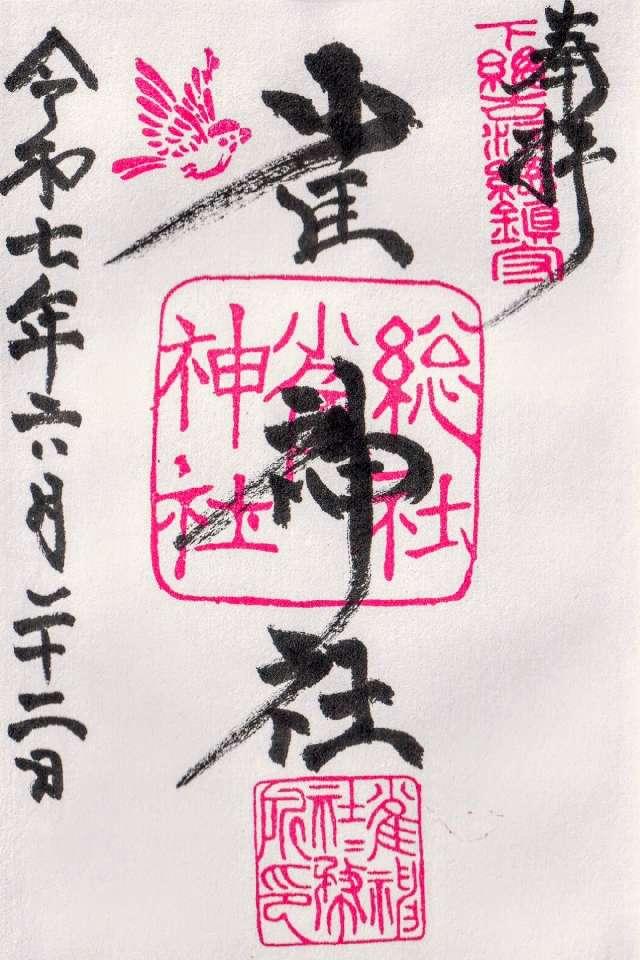 奉拝
下総古河総鎮守
雀神社
総社
雀
神社
雀神
社々務
所印
令和七年六月二十二日